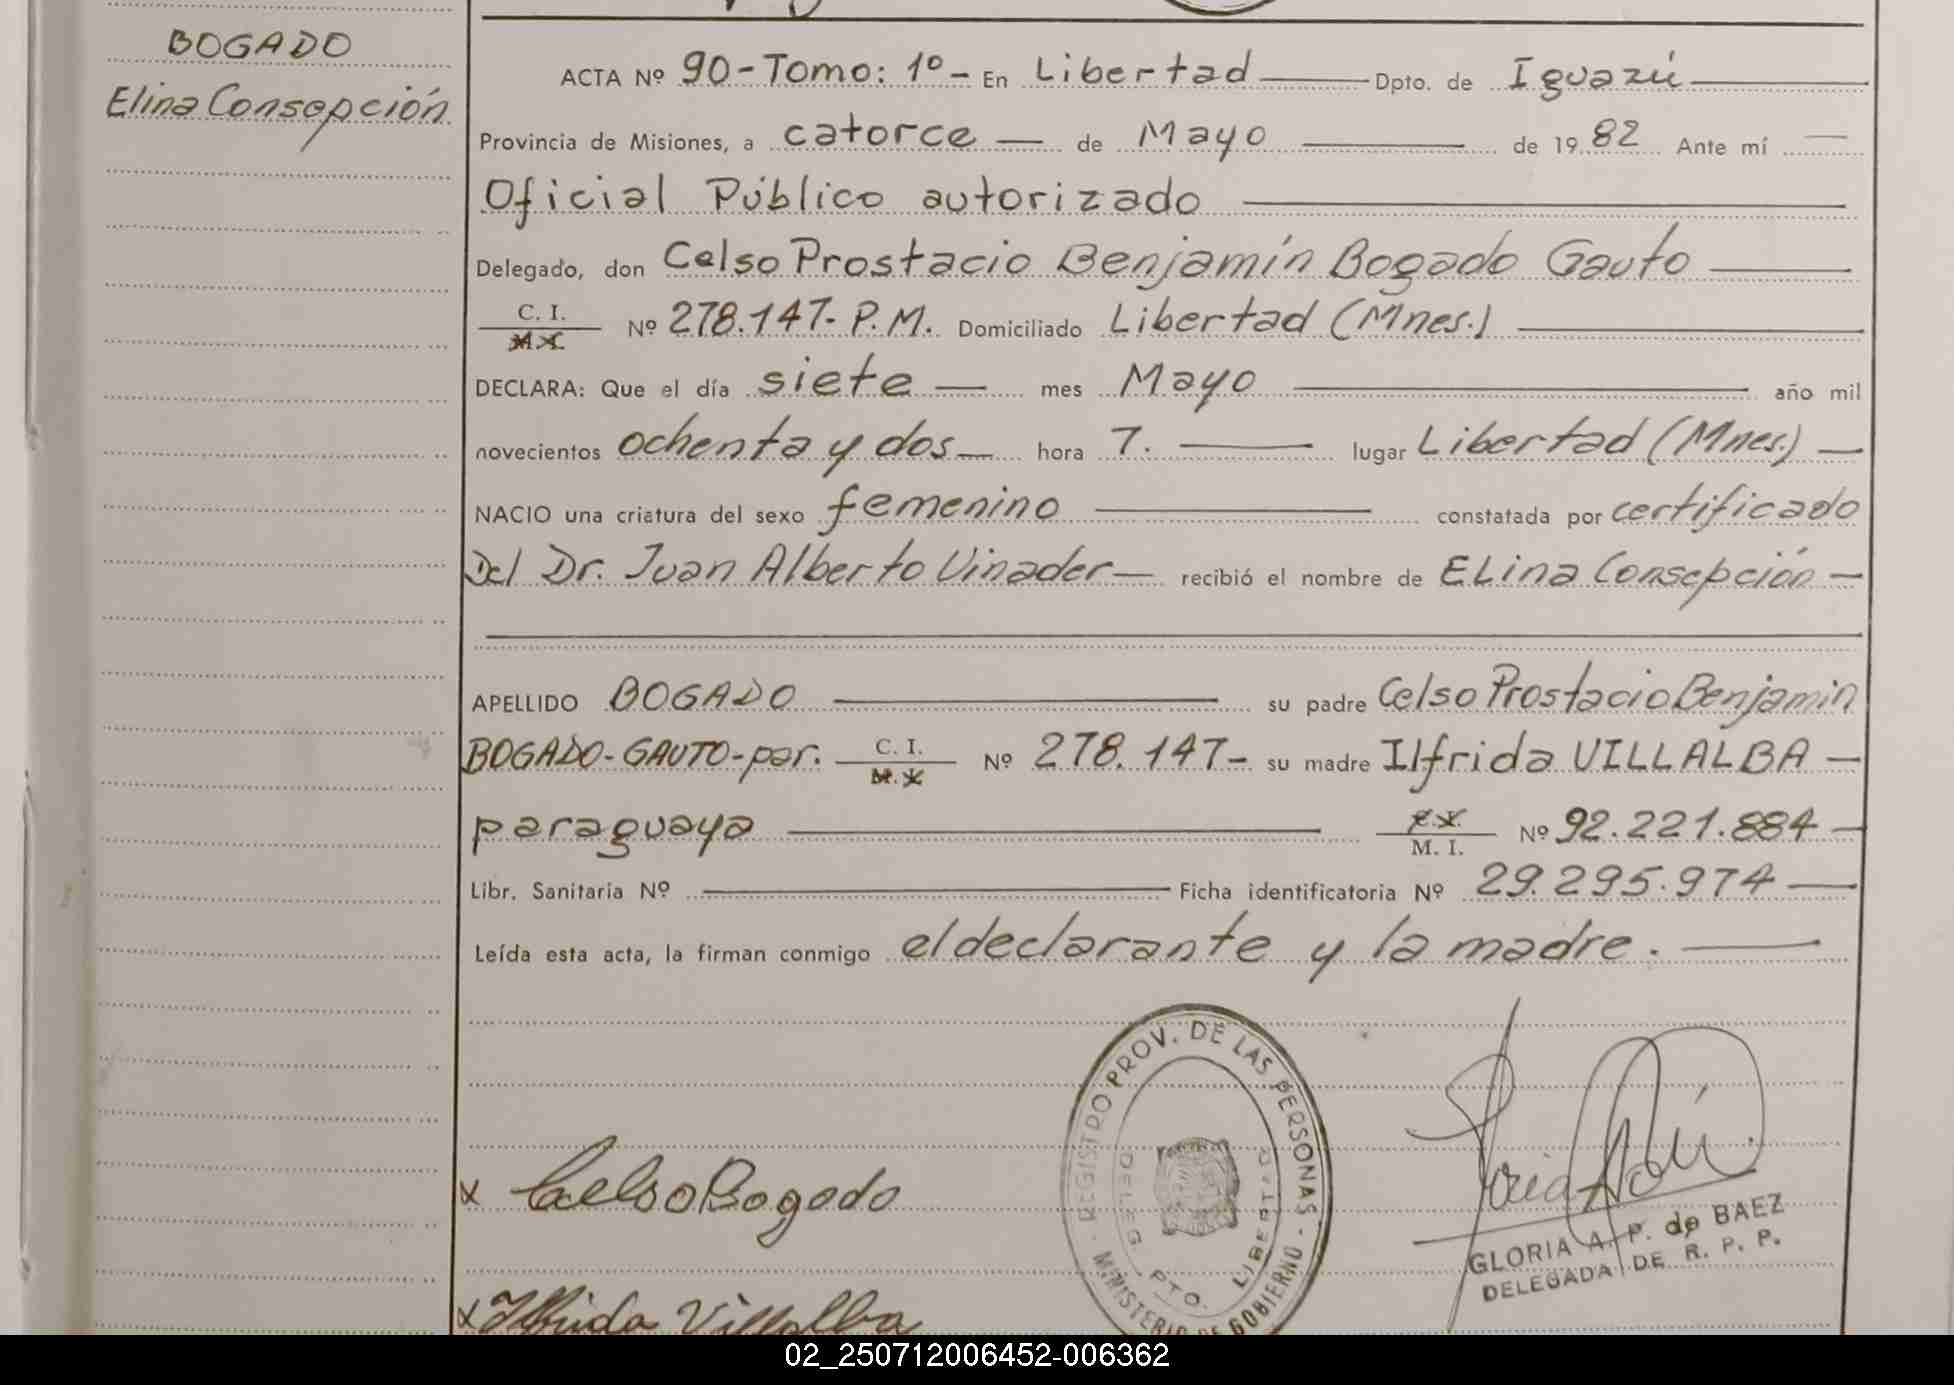 BOGADO
Elina Consepción
ACTA Nº 90-Tomo: 1º- En Libertad Dpto. de Iguazú
Provincia de Misiones, a catorce — de Mayo — de 1982 Ante mí —
Oficial Público autorizado
Delegado, don Celso Prostacio Benjamín Bogado Gauto
C. I. M. I. Nº 278.147- P.M. Domiciliado Libertad (Mnes.)
DECLARA: Que el día siete — mes Mayo — año mil
novecientos ochenta y dos — hora 7. — lugar Libertad (Mnes.) —
NACIO una criatura del sexo femenino — constatada por certificado
Del Dr. Juan Alberto Vinader — recibió el nombre de ELina Consepción —
APELLIDO BOGADO — su padre Celso Prostacio Benjamin
BOGADO-GAUTO-par. C. I. M. I. Nº 278.147- su madre Ilfrida VILLALBA —
paraguaya — C. I. M. I. Nº 92.221.884 —
Libr. Sanitaria Nº — Ficha identificatoria Nº 29.295.974 —
Leída esta acta, la firman conmigo el declarante y la madre. —
REGISTRO PROV. DE LAS PERSONAS - MINISTERIO DE GOBIERNO -
DELEG. PTO. LIBERTAD
x Celso Bogado
GLORIA A. P. de BAEZ
DELEGADA DE R. P. P.
x Ilfrida Villalba
02_250712006452-006362